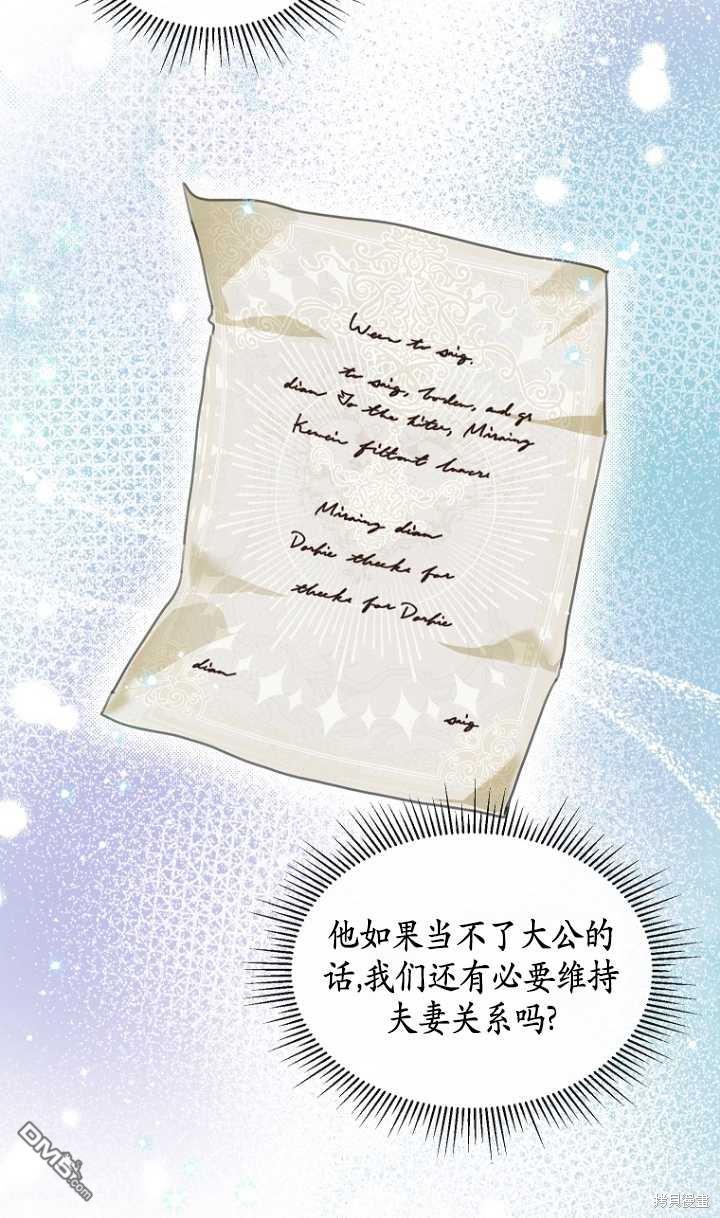 Ween to sig.
to sig, borden, ad gs
dian To the hites, Miraing
Kemein filtout lauers
Miraing dian
Dorhie theeks for
theeks for Dorhie
dian
sig
他如果当不了大公的
话,我们还有必要维持
夫妻关系吗?
DM5.com
拷貝漫畫